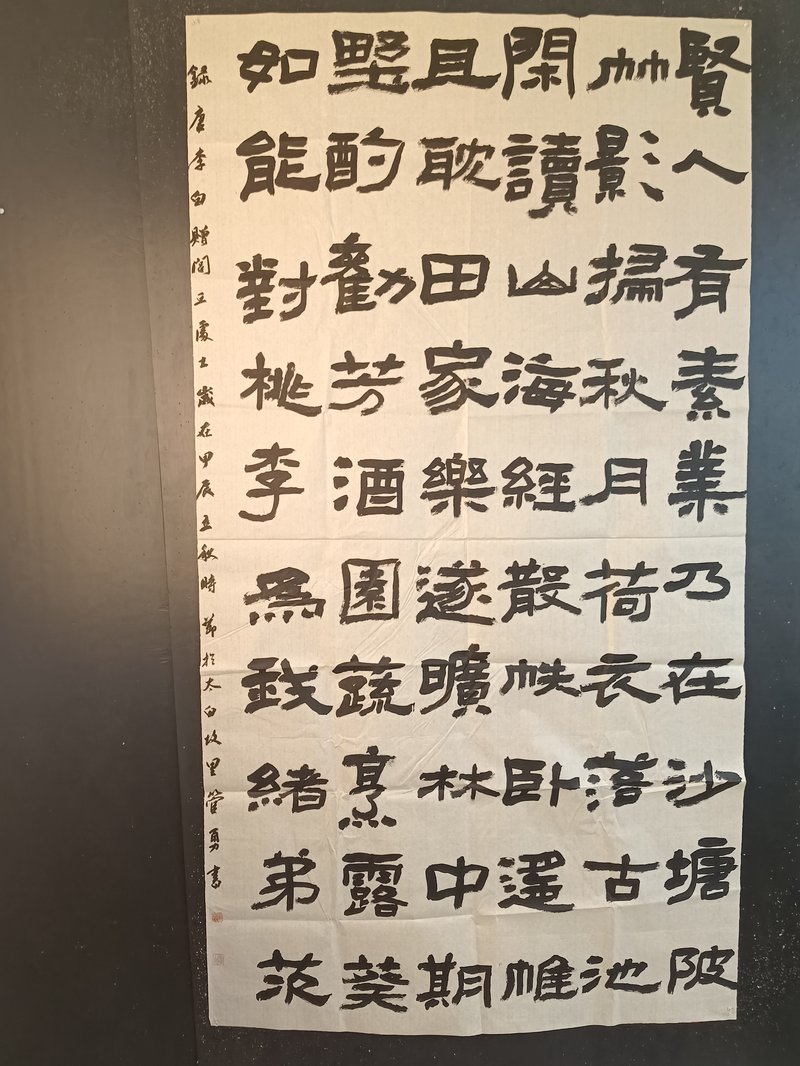 賢人有素業乃在沙塘陂
竹影掃秋月荷衣落古池
閑讀山海經散帙卧遥帷
且耽田家樂遂曠林中期
墅酌勸芳酒園蔬烹露葵
如能對桃李為我緒茅茨
録唐李白贈閭丘處士歲在甲辰立秋時節於太白故里管勇書